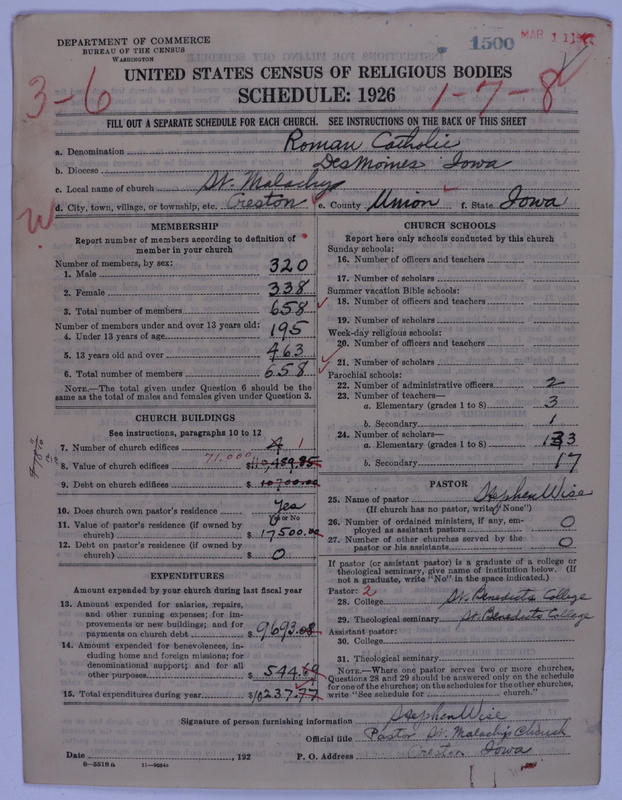 DEPARTMENT OF COMMERCE
BUREAU OF THE CENSUS
WASHINGTON
1500
MAR 11
UNITED STATES CENSUS OF RELIGIOUS BODIES
SCHEDULE: 1926
3-6
1-7-8
FILL OUT A SEPARATE SCHEDULE FOR EACH CHURCH. SEE INSTRUCTIONS ON THE BACK OF THIS SHEET
a. Denomination Roman Catholic
b. Diocese DesMoines Iowa
c. Local name of church St. Malachy
d. City, town, village, or township, etc. Creston e. County Union f. State Iowa
W
MEMBERSHIP
Report number of members according to definition of
member in your church
Number of members, by sex:
1. Male 320
2. Female 338
3. Total number of members 658
Number of members under and over 13 years old:
4. Under 13 years of age 195
5. 13 years old and over 463
6. Total number of members 658
NOTE.—The total given under Question 6 should be the
same as the total of males and females given under Question 3.
CHURCH BUILDINGS
See instructions, paragraphs 10 to 12
7. Number of church edifices 4 1
8. Value of church edifices 71,000 $110,459.85
9. Debt on church edifices $10700.00
10. Does church own pastor's residence Yes
Yes or No
11. Value of pastor's residence (if owned by
church) $17500.00
12. Debt on pastor's residence (if owned by
church) $0
EXPENDITURES
Amount expended by your church during last fiscal year
13. Amount expended for salaries, repairs,
and other running expenses; for im-
provements or new buildings; and for
payments on church debt $9693.08
14. Amount expended for benevolences, in-
cluding home and foreign missions; for
denominational support; and for all
other purposes $544.69
15. Total expenditures during year $10237.77
CHURCH SCHOOLS
Report here only schools conducted by this church
Sunday schools:
16. Number of officers and teachers
17. Number of scholars
Summer vacation Bible schools:
18. Number of officers and teachers
19. Number of scholars
Week-day religious schools:
20. Number of officers and teachers
21. Number of scholars
Parochial schools:
22. Number of administrative officers 2
23. Number of teachers—
a. Elementary (grades 1 to 8) 3
b. Secondary 1
24. Number of scholars—
a. Elementary (grades 1 to 8) 133
b. Secondary 17
PASTOR
25. Name of pastor Stephen Wise
(If church has no pastor, write "None")
26. Number of ordained ministers, if any, em-
ployed as assistant pastors 0
27. Number of other churches served by the
pastor or his assistants 0
If pastor (or assistant pastor) is a graduate of a college or
theological seminary, give name of institution below. (If
not a graduate, write "No" in the space indicated.)
Pastor: 2
28. College St. Benedicts College
29. Theological seminary St. Benedicts College
Assistant pastor:
30. College
31. Theological seminary
NOTE.—Where one pastor serves two or more churches,
Questions 28 and 29 should be answered only on the schedule
for one of the churches; on the schedules for the other churches,
write "See schedule for church."
Signature of person furnishing information Stephen Wise
Official title Pastor St. Malachy's Church
Date , 192 P. O. Address Creston Iowa
8-5518a